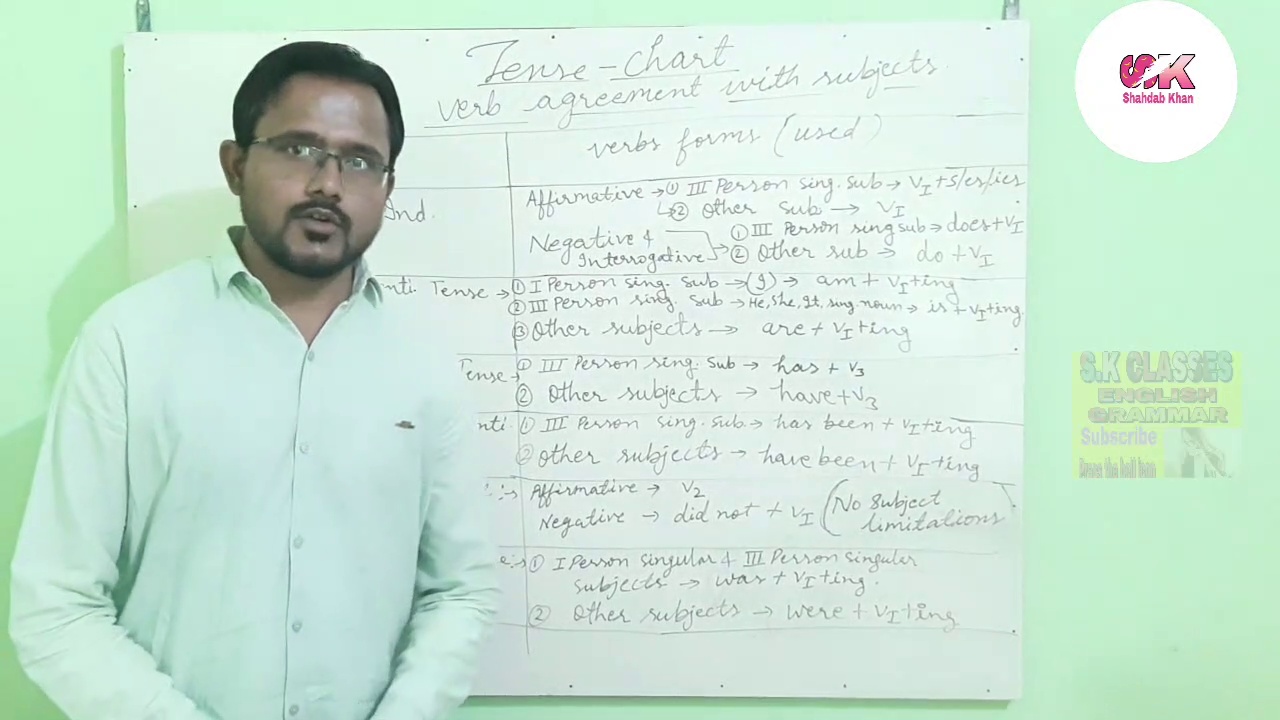 Tense-chart
verb agreement with subjects.
verbs forms (used)
Ind.
Affirmative → ① III Person sing. sub → V_I + s/es/ies
↳ ② Other Sub → V_I
Negative & Interrogative → ① III Person sing sub → does + V_I
② Other sub → do + V_I
nti. Tense → ① I Person sing. sub → (I) → am + V_I + ing
② III Person sing. Sub → He, She, It, sing. noun → is + V_I + ing.
③ Other subjects → are + V_I + ing
Tense → ① III Person sing. Sub → has + V3
② Other subjects → have + V3
nti. ① III Person sing. sub → has been + V_I + ing
② other subjects → have been + V_I + ing
Affirmative → V2
Negative → did not + V_I (No Subject limitations)
e:→ ① I Person singular & III Person singular
subjects → was + V_I + ing.
② Other subjects → were + V_I + ing
SK
Shahdab Khan
S.K CLASSES
ENGLISH
GRAMMAR
Subscribe
Press the bell Icon